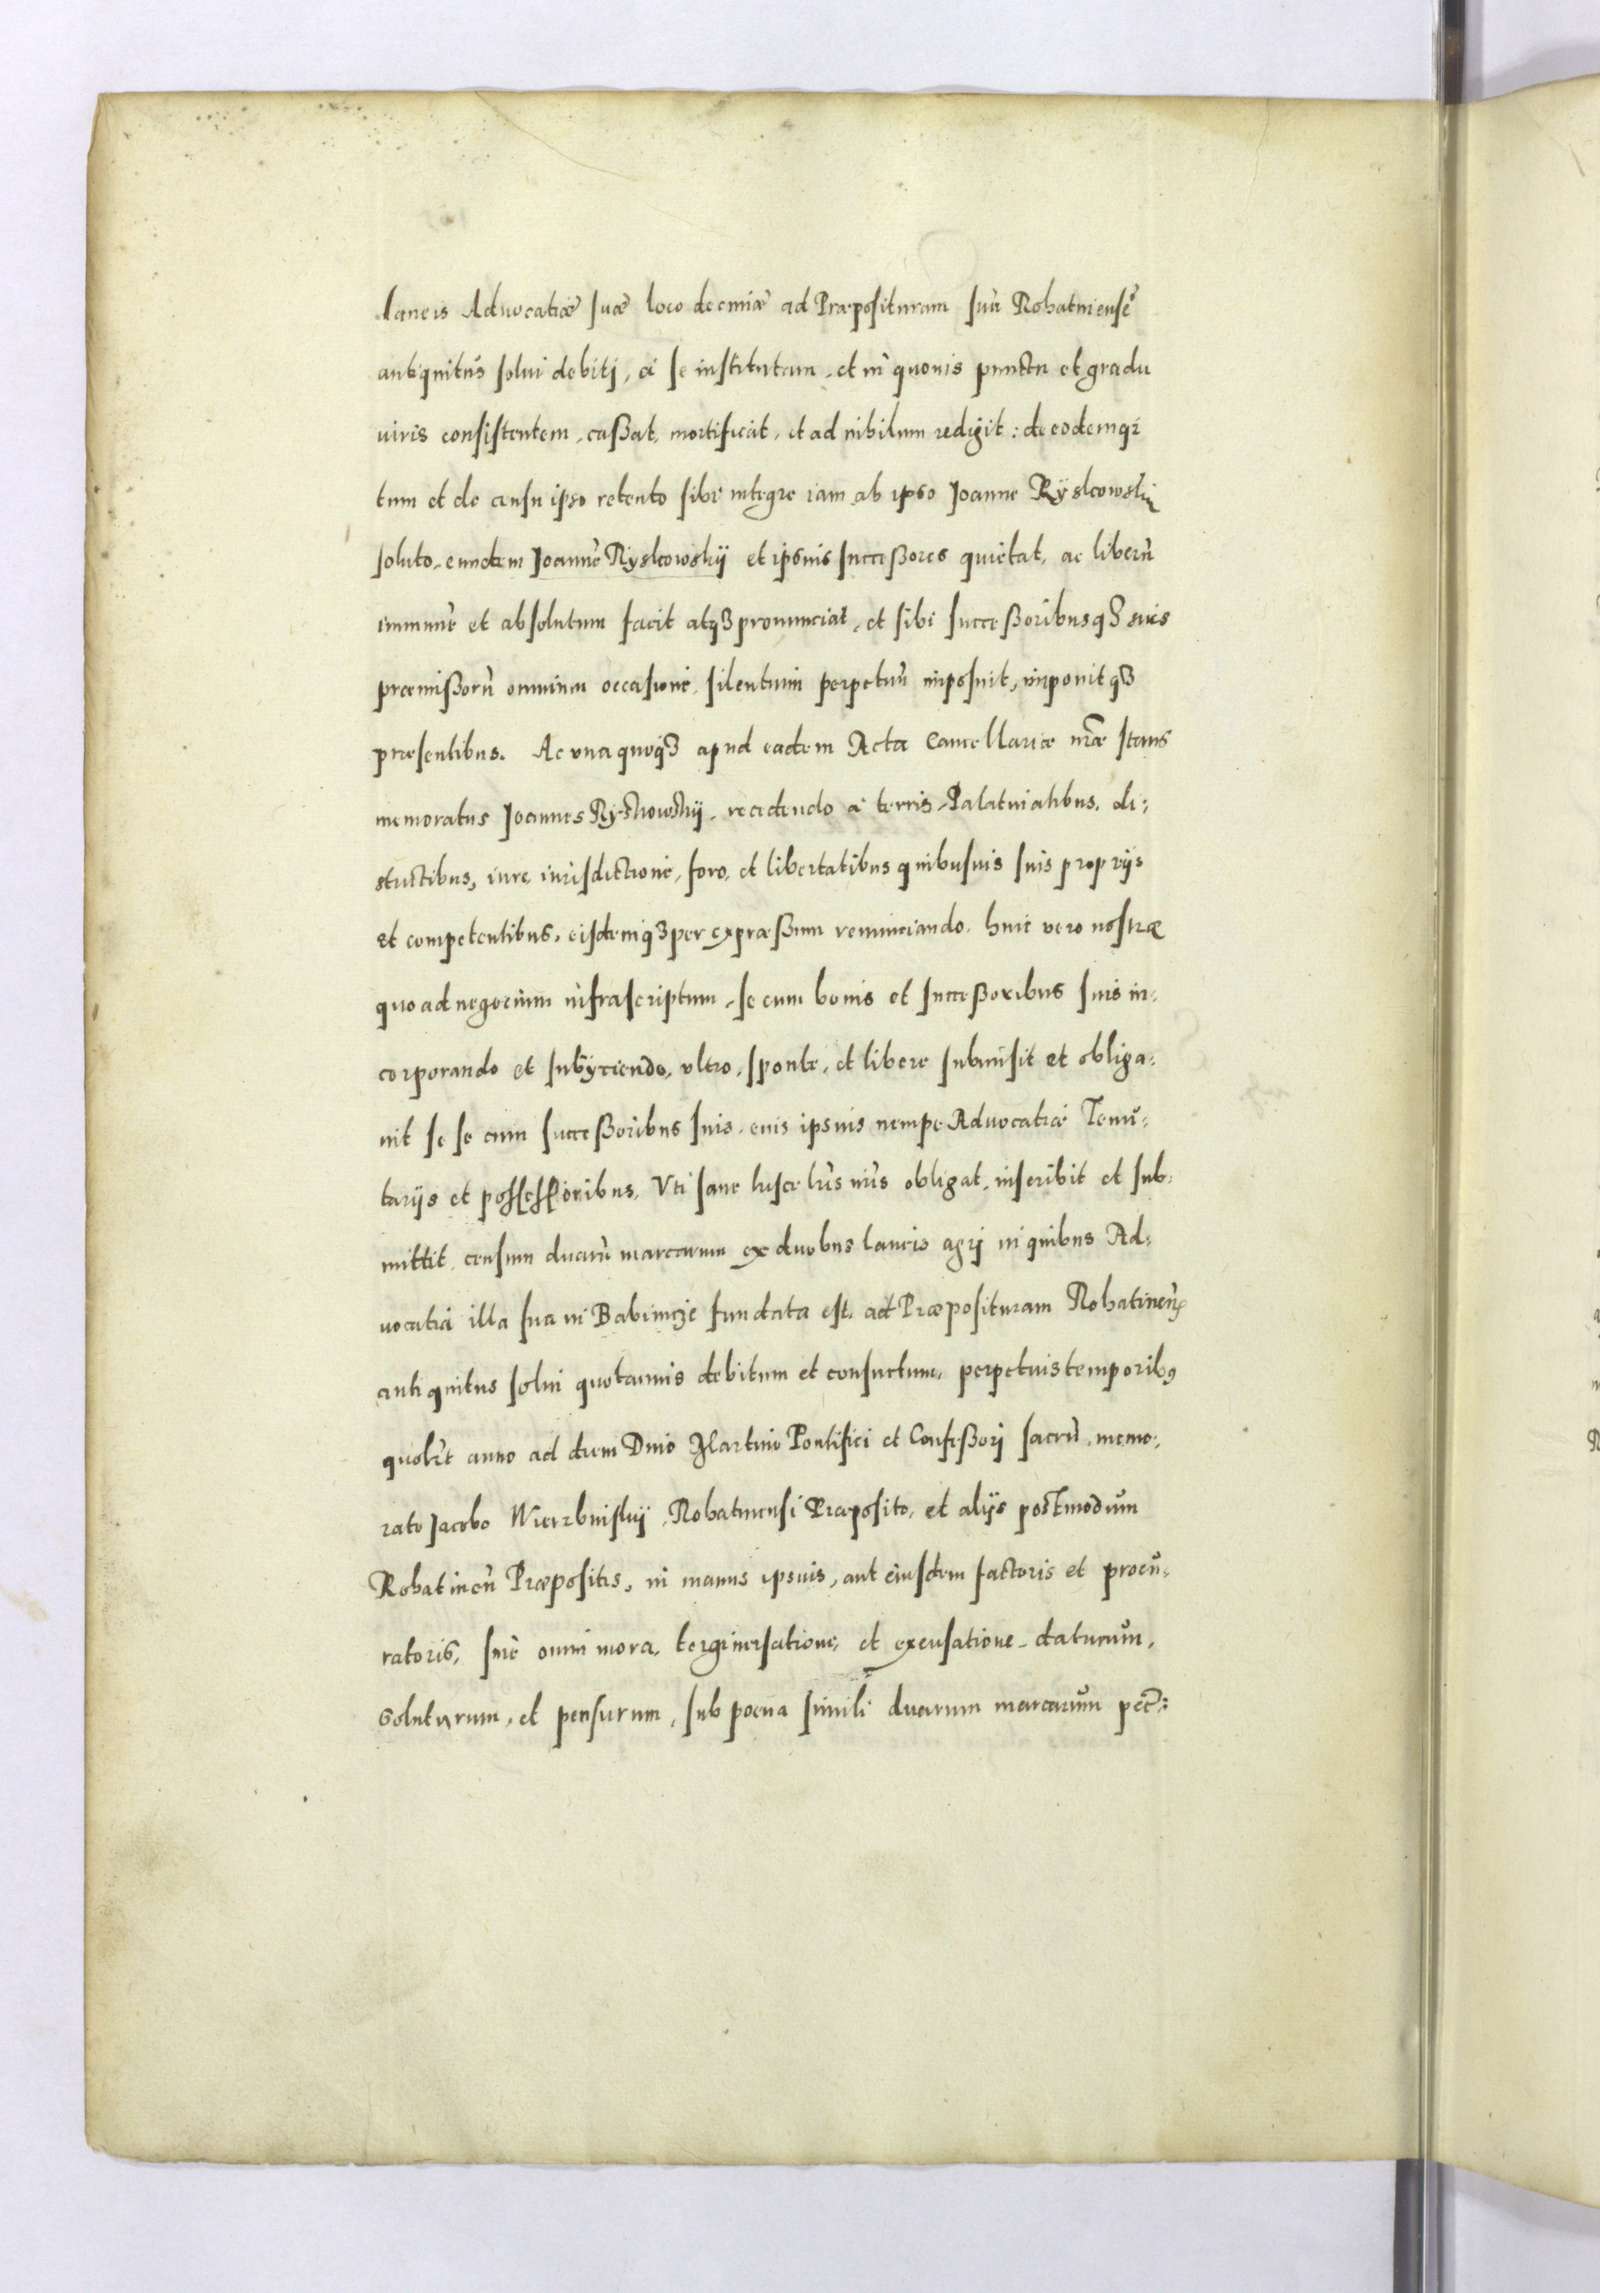 laneis Advocatiæ suæ loco decimæ ad Præposituram suã Rohatinensẽ
antiquitus solui debitj, a se institutam, et in quouis punctu et gradu
iuris consistentem, cassat, mortificat, et ad nihilum redigit: de eodemq̃
tum et de censu ipso retento sibi integre iam ab ipso Joanne Ryskowskij
soluto, eundem Joannẽ Ryskowskij et ipsius successores quietat, ac liberũ
immunẽ et absolutum facit atqꝫ pronunciat, et sibi successoribusqꝫ suis
præmissorũ omnium occasione, silentium perpetuũ imposuit, imponitqꝫ
præsentibus. Ac vna quoqꝫ apud eadem Acta Cancellariæ nr̃æ stans
memoratus Joannes Ryskowskij, recedendo a terris, Palatinatibus, di:
strictibus, iure, iurisdictione, foro, et libertatibus quibusuis suis proprijs
et competentibus, eisdemqꝫ per expræssum renunciando, huic vero nostræ
quo ad negocium infrascriptum, se cum bonis et successoribus suis in:
corporando et subyciendo, vltro, sponte, et libere submisit et obliga:
uit se se cum successoribus suis, eius ipsius nempe Advocatiæ Tenũ:
tarijs et possessoribus, Vti sane hisce lr̃is nr̃is obligat, inscribit et sub:
mittit, censum duarũ marcarum ex duobus laneis agrj in quibus Ad:
vocatia illa sua in Babincze fundata est, ad Præposituram Rohatineñ
antiquitus solui quotannis debitum et consuetum, perpetuis temporibꝰ
quolꝫt anno ad diem Diuo Martino Pontifici et Confessorj sacrũ, memo:
rato Jacobo Wierzbinskij, Rohatinensi Præposito, et alijs postmodum
Rohatineñ Præpositis, in manus ipsius, aut eiusdem factoris et procũ:
ratoris, sine omni mora, tergiuersatione, et excusatione daturum,
soluturum, et pensurum, sub poena simili duarum marcarum pec̃: